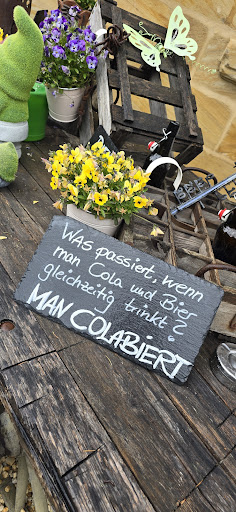 Was passiert, wenn
man Cola und Bier
gleichzeitig trinkt?
MAN COLABIERT